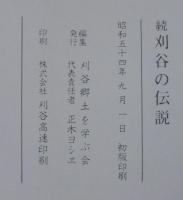 続刈谷の伝説
昭和五十四年 九月 一日 初版印刷
編集 刈谷郷土を学ぶ会
発行 代表責任者 正木ヨシエ
印刷 株式会社 刈谷高速印刷